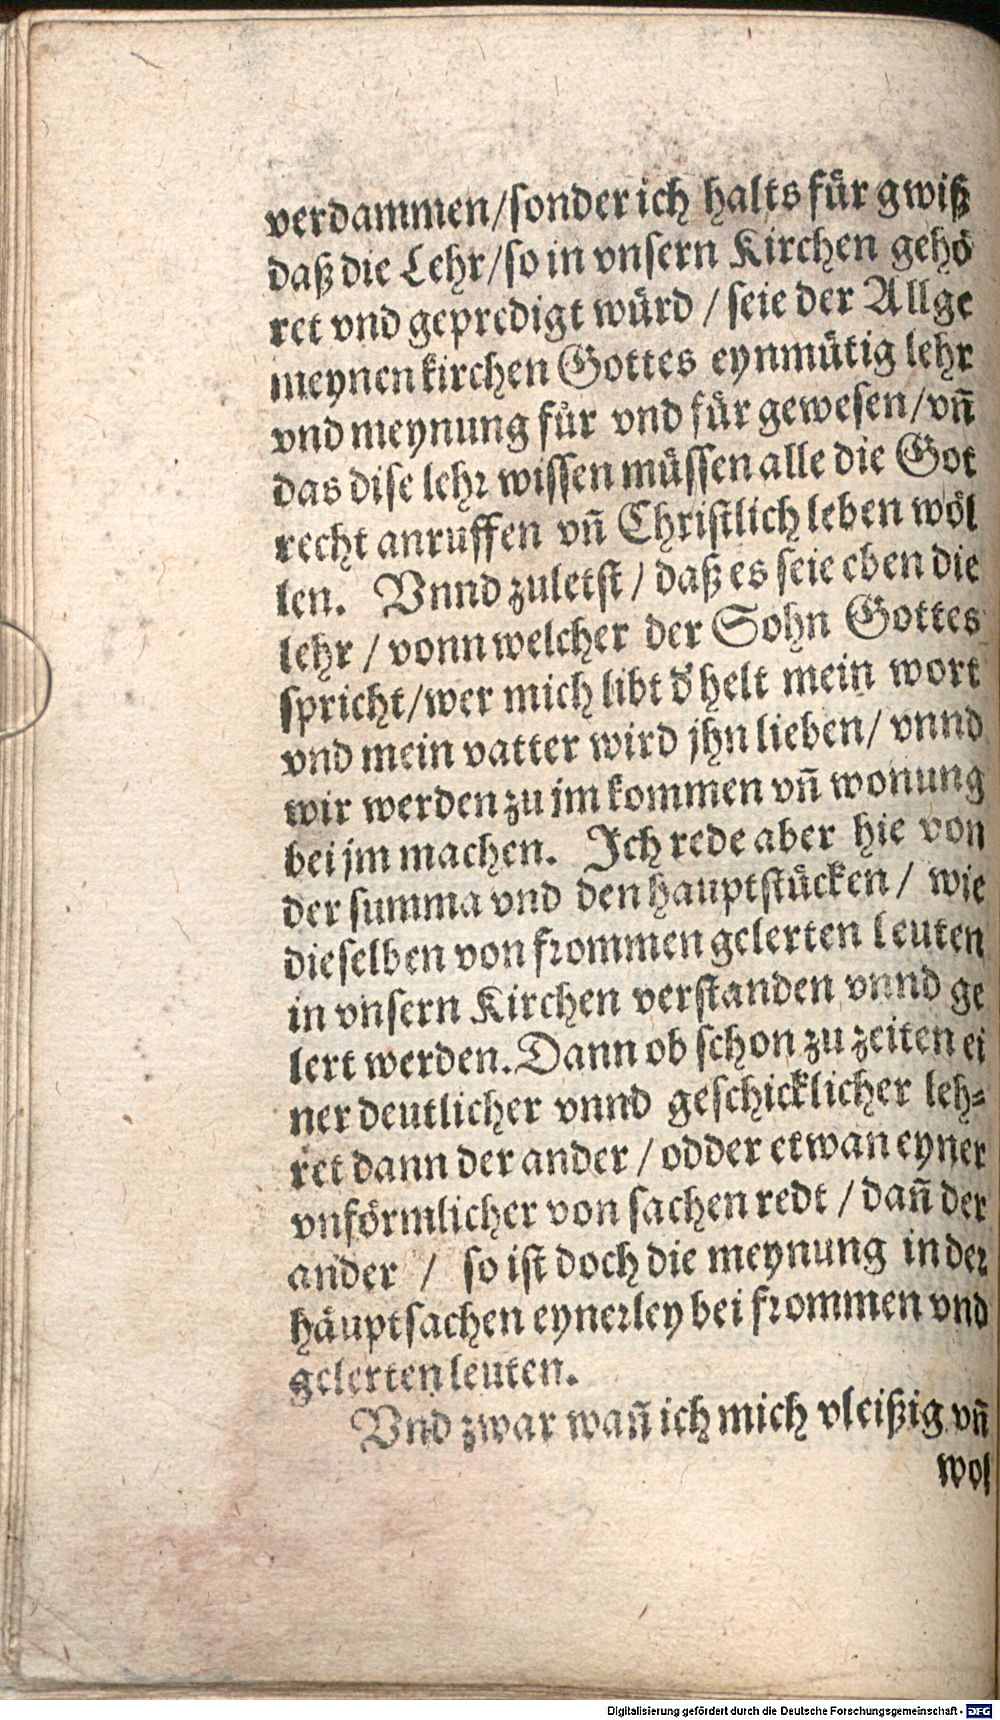 verdammen/sonder ich halts für gwiß
daß die Lehr/so in vnsern Kirchen gehö
ret vnd gepredigt würd / seie der Allge
meynen kirchen Gottes eynmütig lehr
vnd meynung für vnd für gewesen/vñ
das dise lehr wissen müssen alle die Got
recht anruffen vñ Christlich leben wöl
len. Vnnd zuletst / daß es seie eben die
lehr / vonn welcher der Sohn Gottes
spricht/wer mich libt d' helt mein wort
vnd mein vatter wird jhn lieben/ vnnd
wir werden zu jm kommen vñ wonung
bei jm machen. Ich rede aber hie von
der summa vnd den hauptstücken / wie
dieselben von frommen gelerten leuten
in vnsern Kirchen verstanden vnnd ge
lert werden. Dann ob schon zu zeiten ei
ner deutlicher vnnd geschicklicher leh⸗
ret dann der ander / odder etwan eyner
vnförmlicher von sachen redt / dañ der
ander / so ist doch die meynung in der
häuptsachen eynerley bei frommen vnd
gelerten leuten.
Vnd zwar wañ ich mich vleißig vñ
wol
Digitalisierung gefördert durch die Deutsche Forschungsgemeinschaft - DFG